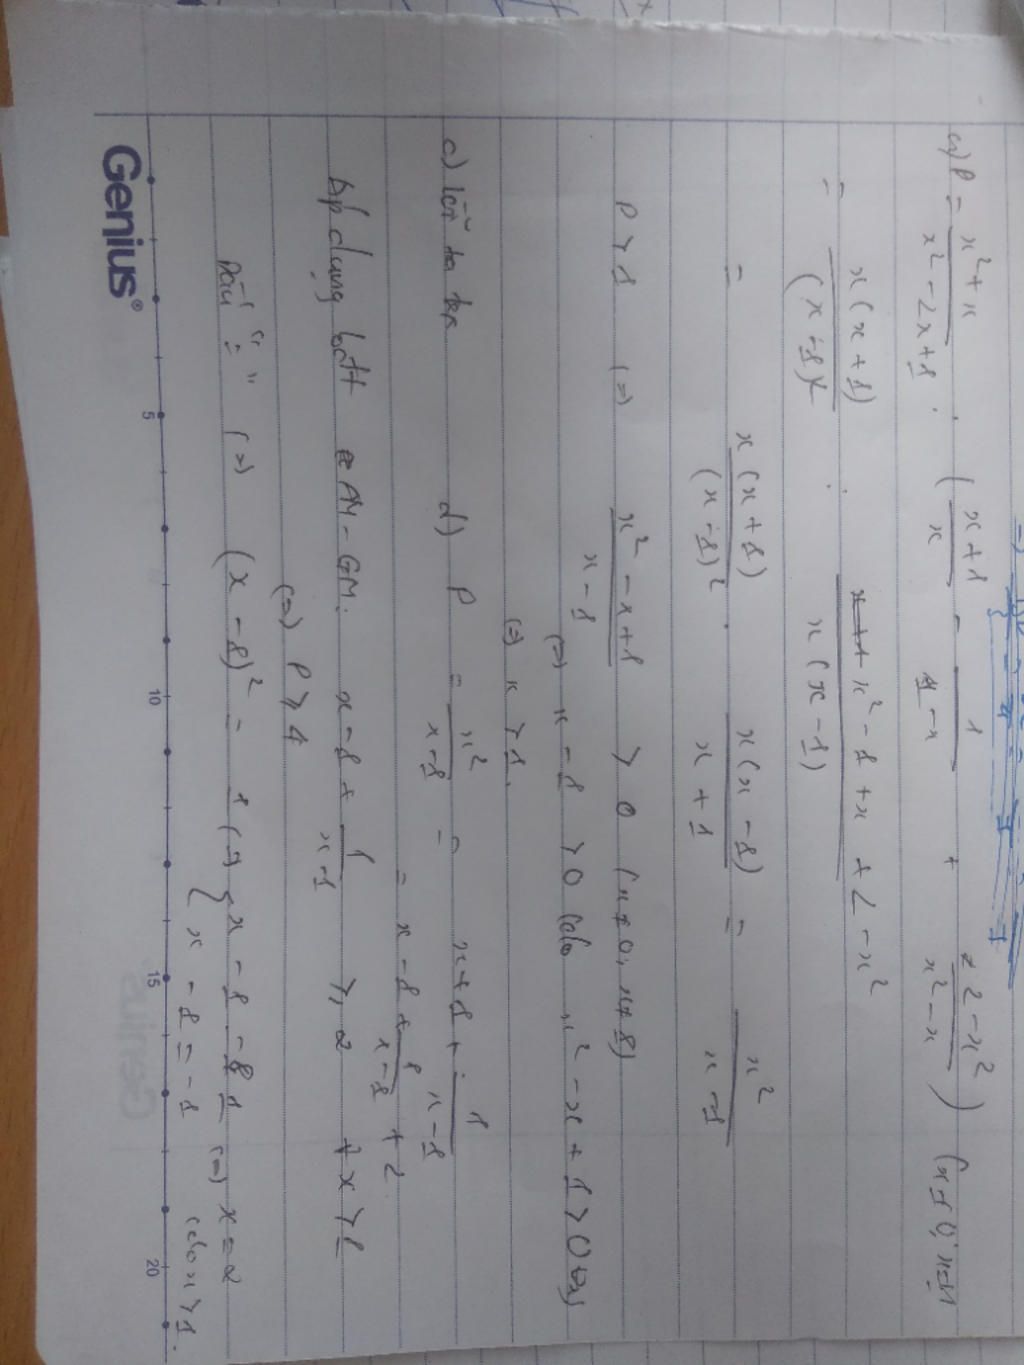 a) P = \frac{x^2+x}{x^2-2x+1} . ( \frac{x+1}{x} - \frac{1}{1-x} + \frac{2-x^2}{x^2-x} )
= \frac{x(x+1)}{(x-1)^2} . \frac{x^2-1+x+2-x^2}{x(x-1)}
= \frac{x(x+1)}{(x-1)^2} . \frac{x(x-1)}{x+1} = \frac{x^2}{x-1}
P > 1 (=) \frac{x^2-x+1}{x-1} > 0 (x≠0, x≠1)
(=) x - 1 > 0 (do x^2 - x + 1 > 0
(=) x > 1.
c) d) P = \frac{x^2}{x-1} = x+1 + \frac{1}{x-1}
= x-1 + \frac{1}{x-1} + 2
Áp dụng bđt AM-GM. x-1 + \frac{1}{x-1} ≥ 2 ∀x>1
(=) P ≥ 4
Dấu "=" (=) (x-1)^2 = 1 (=) { x-1 = 1 (=) x=2
x-1 = -1 (do x>1.
Genius®
5 10 15 20